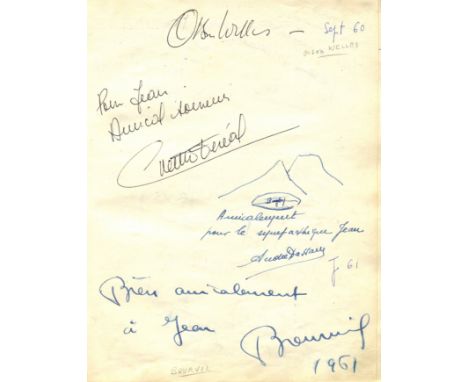 Orson Welles — Sept 60
ORSON WELLES
Pour Jean
Amical
Amicalement
pour le sympathique Jean
61
Bien amicalement
à Jean
Bourvil
1961
BOURVIL